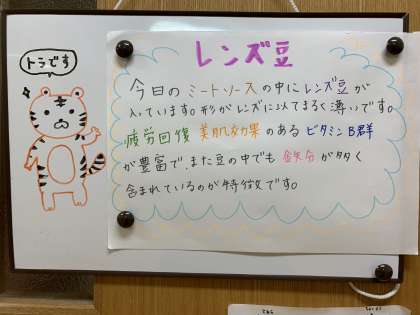 トラです
レンズ豆
今日の ミートソースの中に レンズ豆が
入っています。形がレンズに似てまるく薄いです。
疲労回復 美肌効果の ある ビタミンB群
が豊富で、また豆の中でも 鉄分が多く
含まれているのが特徴です。